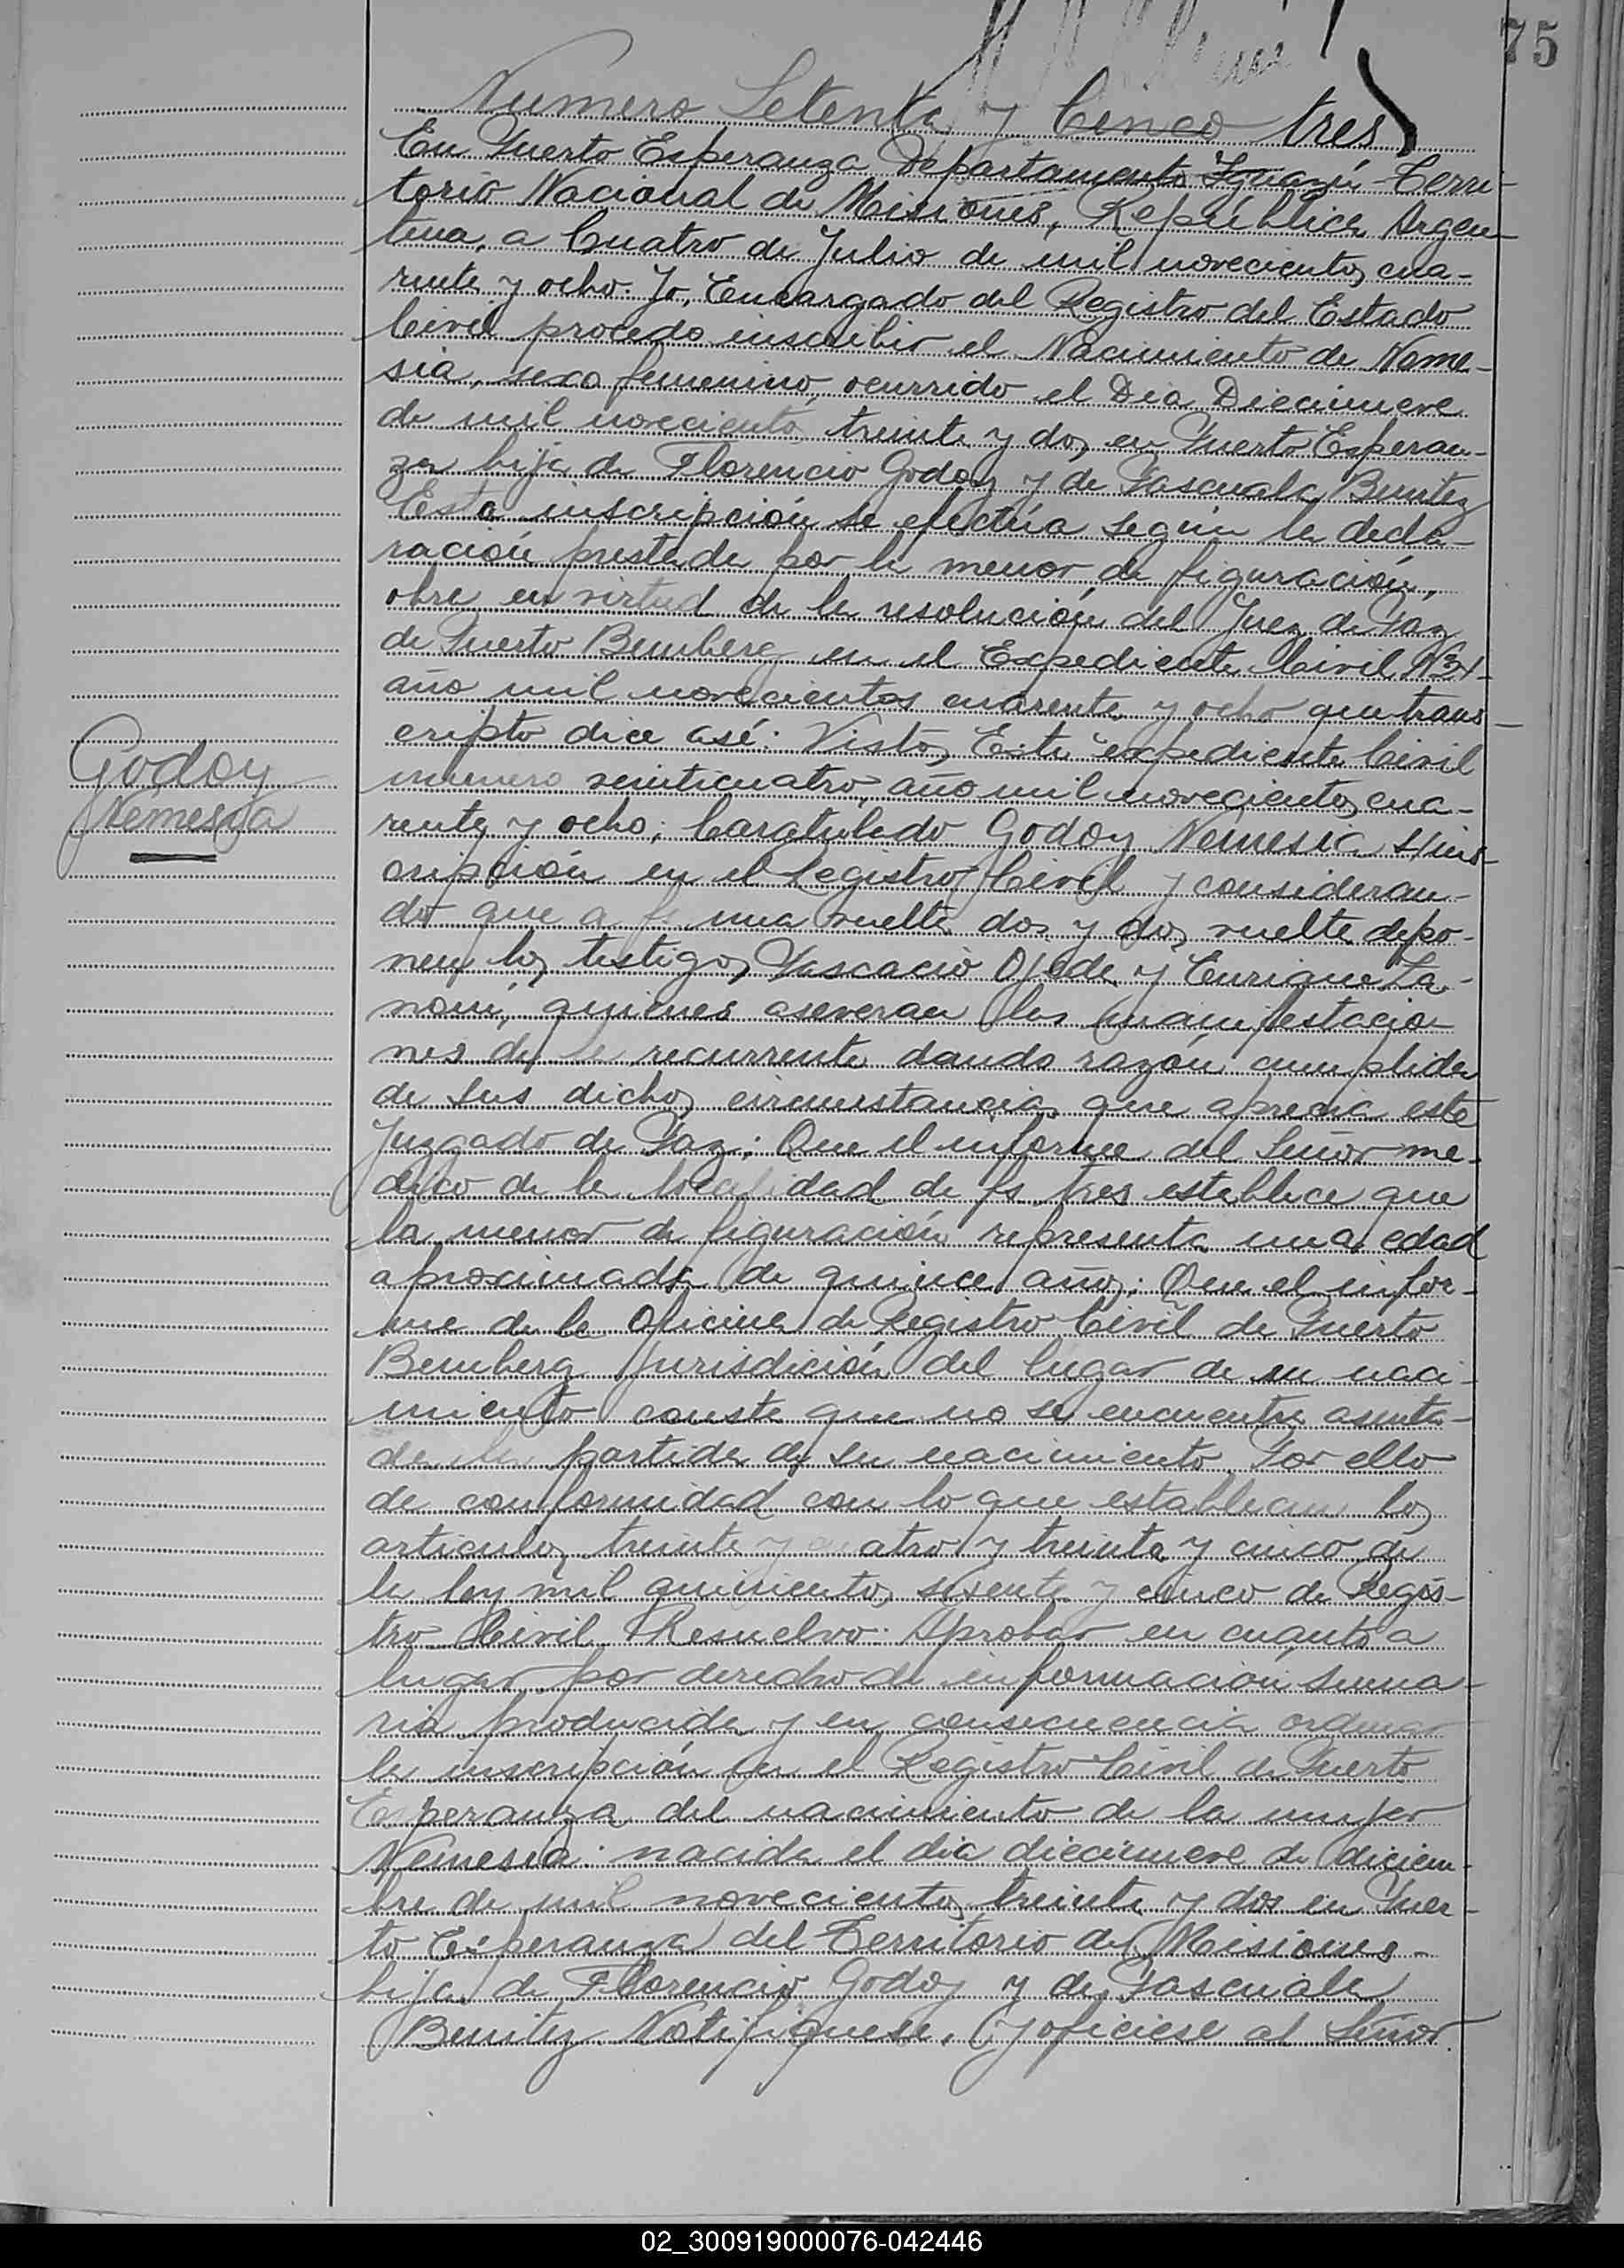 75
Numero Setenta y Cinco tres
En Puerto Esperanza Departamento Iguazú Terri-
torio Nacional de Misiones, República Argen-
tina, a Cuatro de Julio de mil novecientos cua-
renta y ocho. Yo, Encargado del Registro del Estado
Civil procedo inscribir el Nacimiento de Neme-
sia, sexo femenino, ocurrido el Dia Diecinueve
de mil novecientos treinta y dos, en Puerto Esperan-
za hija de Florencio Godoy y de Pascuala Benitez
Esta inscripción se efectúa según la decla-
ración prestada por la menor de figuración,
obra en virtud de la resolución del Juez de Paz
de Puerto Bemberg en el Expediente Civil
año mil novecientos cuarenta y ocho que trans-
cripto dice así: Vistos, Este expediente Civil
numero veinticuatro, año mil novecientos cua-
renta y ocho; Caratulado Godoy Nemesia s/ins-
Godoy
Nemesia
cripción en el Registro Civil y consideran-
do que a fs una vuelta dos y dos vuelta depo-
nen los testigos Pascacio Ojeda y Enrique Za-
noni, quienes aseveran las manifestacio-
nes de la recurrente dando razón cumplida
de sus dichos, circunstancias que aprecia este
Juzgado de Paz; Que el informe del Señor me-
dico de la localidad de fs tres establece que
la menor de figuración representa una edad
aproximada de quince años; Que el infor-
me de la Oficina de Registro Civil de Puerto
Bemberg Jurisdición del lugar de su naci-
miento consta que no se encuentra asenta-
da la partida de su nacimiento. Por ello
de conformidad con lo que establecen los
articulos treinta y cuatro y treinta y cinco de
la ley mil quinientos sesenta y cinco de Regis-
tro Civil, Resuelvo: Aprobar en cuanto a
lugar por derecho de información suma-
ria producida y en consecuencia ordenar
la inscripción en el Registro Civil de Puerto
Esperanza del nacimiento de la mujer
Nemesia: nacida el dia diecinueve de diciem-
bre de mil novecientos treinta y dos en Puer-
to Esperanza del Territorio de Misiones-
hija de Florencio Godoy y de Pascuala
Benitez Notifiquese, y oficiese al Señor
02_300919000076-042446